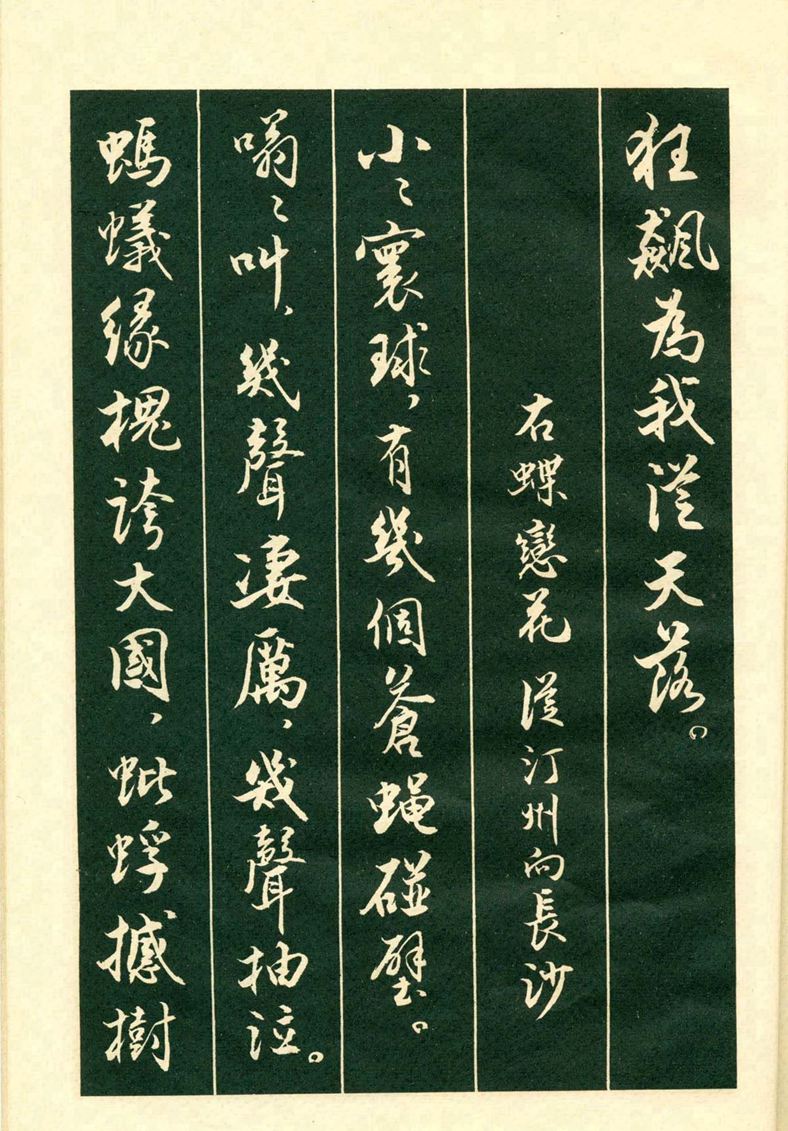 狂飆為我從天落。
右蝶戀花 從汀州向長沙
小〻寰球，有幾個蒼蠅碰壁。
嗡〻叫，幾聲凄厲，幾聲抽泣。
螞蟻緣槐誇大國，蚍蜉撼樹